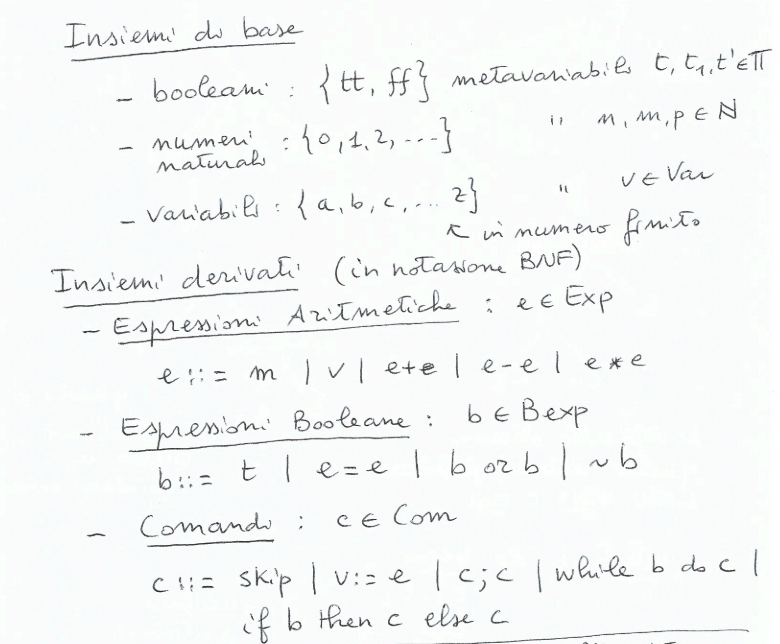 Insiemi di base
- booleani : {tt, ff} metavariabili t, t₁, t' ∈ 𝕋
- numeri naturali : {0, 1, 2, ---} " n, m, p ∈ ℕ
- variabili : {a, b, c, ... z} " v ∈ Var
↖ in numero finito
Insiemi derivati (in notazione BNF)
- Espressioni Aritmetiche : e ∈ Exp
e ::= m | v | e+e | e-e | e*e
- Espressioni Booleane : b ∈ Bexp
b ::= t | e=e | b or b | ~b
- Comandi : c ∈ Com
c ::= skip | v:= e | c;c | while b do c |
if b then c else c